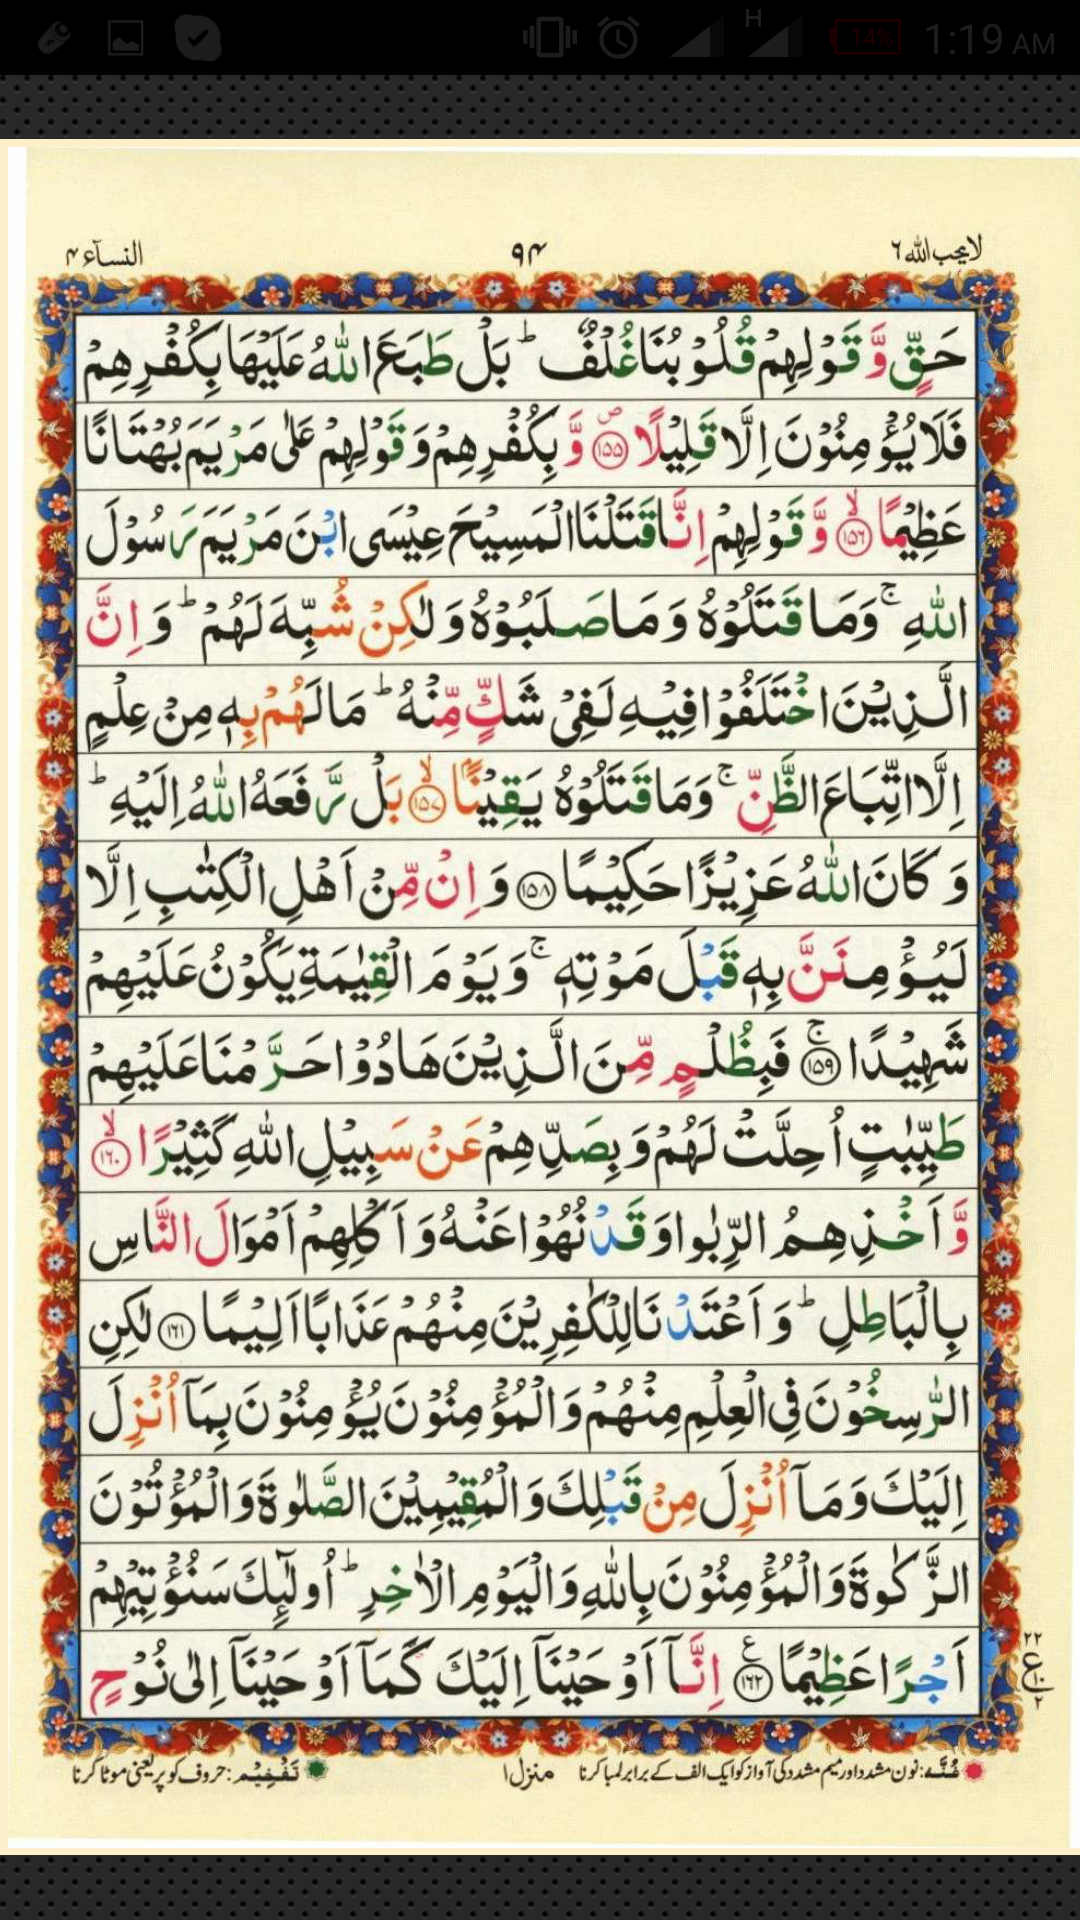 H
14%
1:19 AM
لایحب الله ٦
٩٤
النسآء ٤
حَقٍّ وَّقَوْلِهِمْ قُلُوْبُنَا غُلْفٌ ؕ بَلْ طَبَعَ اللّٰهُ عَلَیْهَا بِكُفْرِهِمْ
فَلَا یُؤْمِنُوْنَ اِلَّا قَلِیْلًا ﴿١٥٥﴾ۖ وَّبِكُفْرِهِمْ وَقَوْلِهِمْ عَلٰی مَرْیَمَ بُهْتَانًا
عَظِیْمًا ﴿١٥٦﴾ۙ وَّقَوْلِهِمْ اِنَّا قَتَلْنَا الْمَسِیْحَ عِیْسَی ابْنَ مَرْیَمَ رَسُوْلَ
اللّٰهِ ۚ وَمَا قَتَلُوْهُ وَمَا صَلَبُوْهُ وَلٰكِنْ شُبِّهَ لَهُمْ ؕ وَاِنَّ
الَّذِیْنَ اخْتَلَفُوْا فِیْهِ لَفِیْ شَكٍّ مِّنْهُ ؕ مَا لَهُمْ بِهٖ مِنْ عِلْمٍ
اِلَّا اتِّبَاعَ الظَّنِّ ۚ وَمَا قَتَلُوْهُ یَقِیْنًۢا ﴿١٥٧﴾ۙ بَلْ رَّفَعَهُ اللّٰهُ اِلَیْهِ ؕ
وَكَانَ اللّٰهُ عَزِیْزًا حَكِیْمًا ﴿١٥٨﴾ وَاِنْ مِّنْ اَهْلِ الْكِتٰبِ اِلَّا
لَیُؤْمِنَنَّ بِهٖ قَبْلَ مَوْتِهٖ ۚ وَیَوْمَ الْقِیٰمَةِ یَكُوْنُ عَلَیْهِمْ
شَهِیْدًا ﴿١٥٩﴾ۚ فَبِظُلْمٍ مِّنَ الَّذِیْنَ هَادُوْا حَرَّمْنَا عَلَیْهِمْ
طَیِّبٰتٍ اُحِلَّتْ لَهُمْ وَبِصَدِّهِمْ عَنْ سَبِیْلِ اللّٰهِ كَثِیْرًا ﴿١٦٠﴾ۙ
وَّاَخْذِهِمُ الرِّبٰوا وَقَدْ نُهُوْا عَنْهُ وَاَكْلِهِمْ اَمْوَالَ النَّاسِ
بِالْبَاطِلِ ؕ وَاَعْتَدْنَا لِلْكٰفِرِیْنَ مِنْهُمْ عَذَابًا اَلِیْمًا ﴿١٦١﴾ لٰكِنِ
الرّٰسِخُوْنَ فِی الْعِلْمِ مِنْهُمْ وَالْمُؤْمِنُوْنَ یُؤْمِنُوْنَ بِمَاۤ اُنْزِلَ
اِلَیْكَ وَمَاۤ اُنْزِلَ مِنْ قَبْلِكَ وَالْمُقِیْمِیْنَ الصَّلٰوةَ وَالْمُؤْتُوْنَ
الزَّكٰوةَ وَالْمُؤْمِنُوْنَ بِاللّٰهِ وَالْیَوْمِ الْاٰخِرِ ؕ اُولٰٓئِكَ سَنُؤْتِیْهِمْ
اَجْرًا عَظِیْمًا ﴿١٦٢﴾ۧ اِنَّاۤ اَوْحَیْنَاۤ اِلَیْكَ كَمَاۤ اَوْحَیْنَاۤ اِلٰی نُوْحٍ
٢٢
ع١٠
٢
غُنَّه: نون مشدد اور میم مشدد کی آواز کو ایک الف کے برابر لمبا کرنا منزل ١ تَفْخِیْم: حروف کو پر یعنی موٹا کرنا